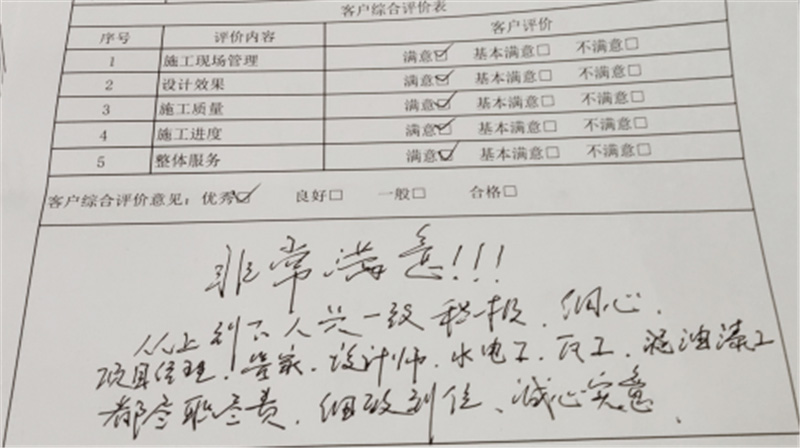 客户综合评价表
序号 评价内容 客户评价
1 施工现场管理 满意☑ 基本满意□ 不满意□
2 设计效果 满意☑ 基本满意□ 不满意□
3 施工质量 满意☑ 基本满意□ 不满意□
4 施工进度 满意☑ 基本满意□ 不满意□
5 整体服务 满意☑ 基本满意□ 不满意□
客户综合评价意见：优秀☑ 良好□ 一般□ 合格□
非常满意!!!
从上到下人员一致积极、细心、
项目经理、管家、设计师、水电工、瓦工、油漆工
都尽职尽责、细致到位、诚心实意